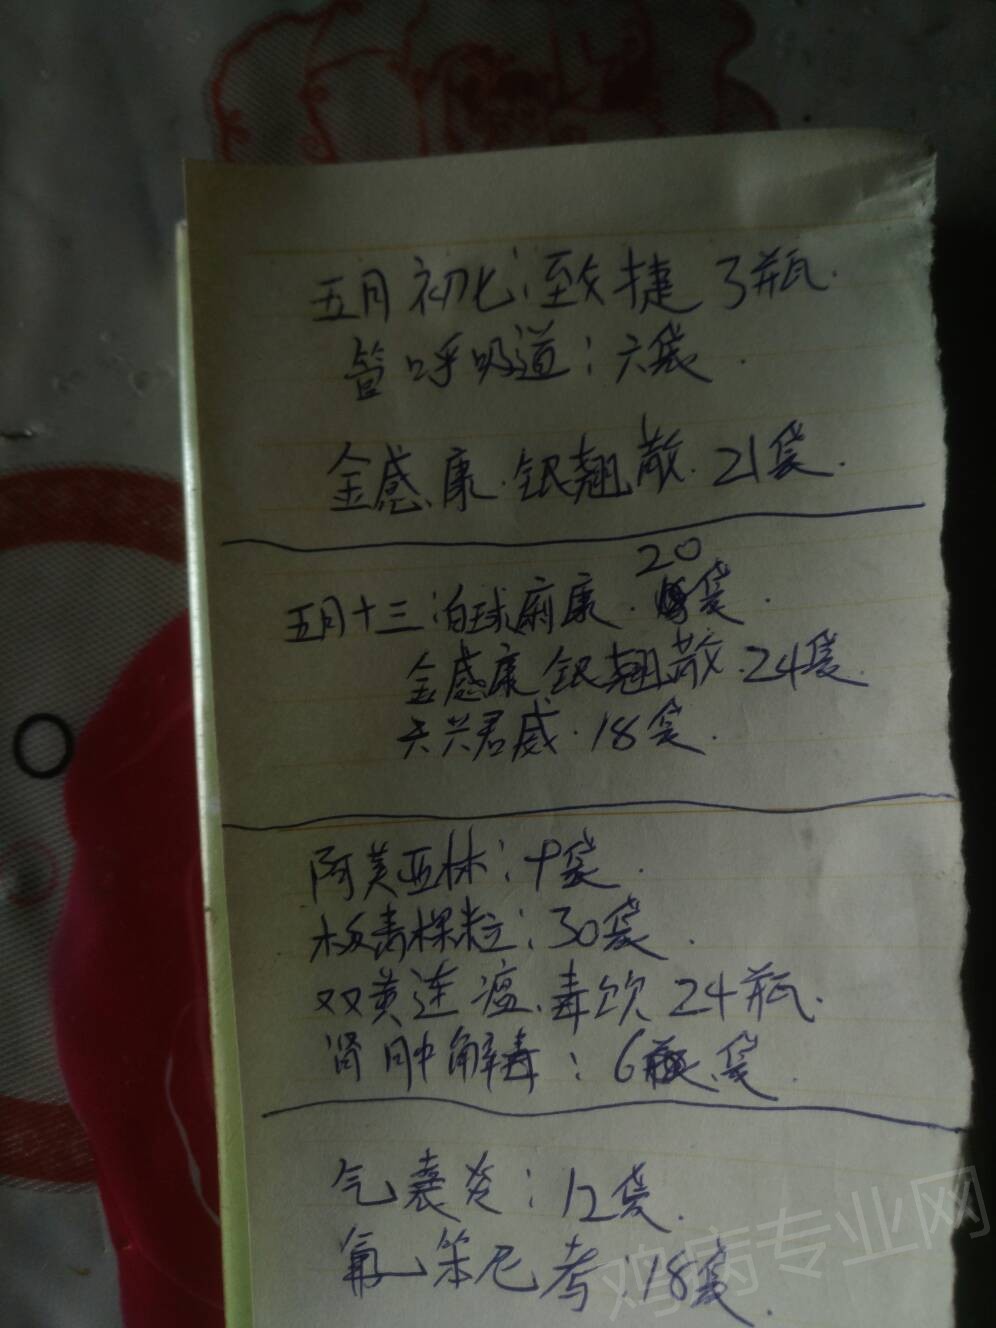 五月初七:致捷 3瓶.
管呼吸道:六袋.
金感康.银翘散.21袋.
20
五月十三:白球痢康.袋.
金感康.银翘散.24袋.
天兴君威.18袋.
阿莫亚林:十袋.
板青棵粒:30袋.
双黄连瘟.毒饮24瓶.
肾肿解毒:6袋.
气囊炎:12袋.
氟笨尼考:18袋.
鸡病专业网